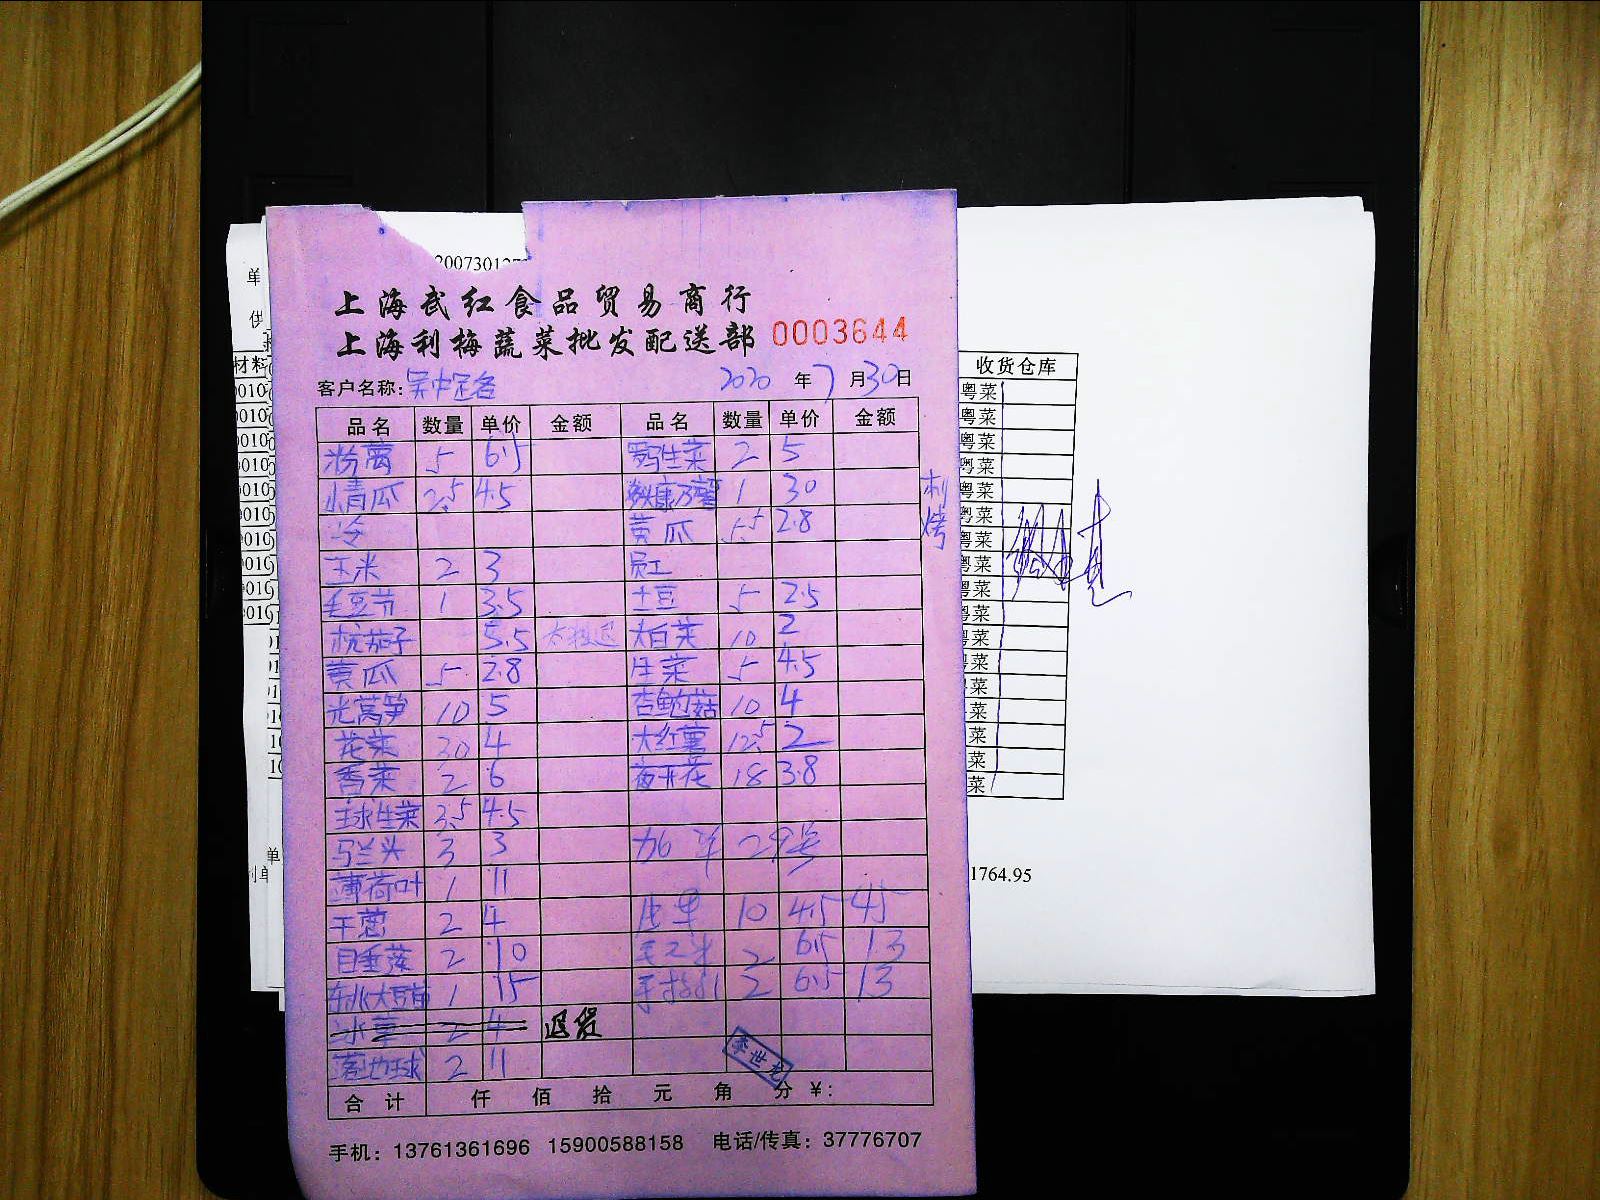 2007301
单
供
材料
上海武红食品贸易商行
上海利梅蔬菜批发配送部 0003644
客户名称: 2020 年 7 月 30 日
品名 数量 单价 金额 品名 数量 单价 金额
粉蒿 5 6.5 罗马生菜 2 5
小青瓜 2.5 4.5 康乃馨 1 30
冷 黄瓜 5.5 2.8
刺烤
玉米 2 3 员工
毛豆节 1 3.5 土豆 5 2.5
杭茄子 5.5 大白菜 10 2
黄瓜 5 2.8 生菜 5 4.5
光莴笋 10 5 杏鲍菇 10 4
花菜 30 4 大红薯 12.5 2
香菜 2 6 夜开花 18 3.8
球生菜 3.5 4.5
马兰头 3 3 加单 29号
薄荷叶 1 11
干葱 2 4 10 4.5 45
2 10 2 6.5 13
1 15 2 6.5 13
冰草 2 4 退货
2 11
李世龙
合计 仟 佰 拾 元 角 分 ¥:
手机: 13761361696 15900588158 电话/传真: 37776707
收货仓库
粤菜
粤菜
粤菜
粤菜
粤菜
粤菜
粤菜
粤菜
粤菜
粤菜
粤菜
粤菜
粤菜
菜
菜
菜
菜
1764.95